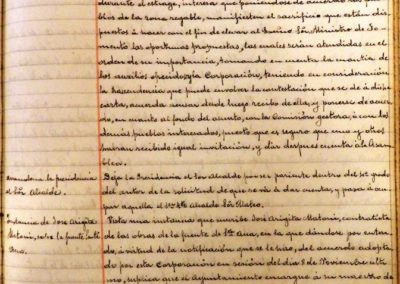 durante el estiage, interesa que poniéndose de acuerdo los pue-
blos de la zona regable, manifiesten el sacrificio que están dis-
puestos á hacer con el fin de elevar al Excmo Sor Ministro de Fo-
mento las oportunas propuestas, las cuales serán atendidas en el
orden de su importancia, tomando en cuenta la cuantía de
los auxilios ofrecidos. La Corporación, teniendo en consideración
la trascendencia que puede envolver la contestación que se dé á dicha
carta, acuerda acusar desde luego recibo de ella, y ponerse de acuer-
do, en cuanto al fondo del asunto, con la Comisión gestora, ó con los
demás pueblos interesados, puesto que es seguro que uno y otros
habrán recibido igual invitación, y dar despues cuenta á la Asam-
blea.
Abandona la presidencia
el Sor Alcalde.
Deja la Presidencia el Sor Alcalde por ser pariente dentro del 4º grado
del autor de la solicitud de que se vá á dar cuenta, y pasa á ocu-
par aquella el 1er Tte Alcalde Sor
Instancia de José Arigita
Matorin, sobre la fuente Santa
Ana.
Vista una instancia que suscribe José Arigita Matorin, contratista
de las obras de la fuente de Sta Ana, en la que dándose por entera-
do, á virtud de la notificación que se le hizo, del acuerdo adopta-
do por esta Corporación en sesión del día 9 de Noviembre últi-
mo, suplica que el Ayuntamiento encargue á su maestro de